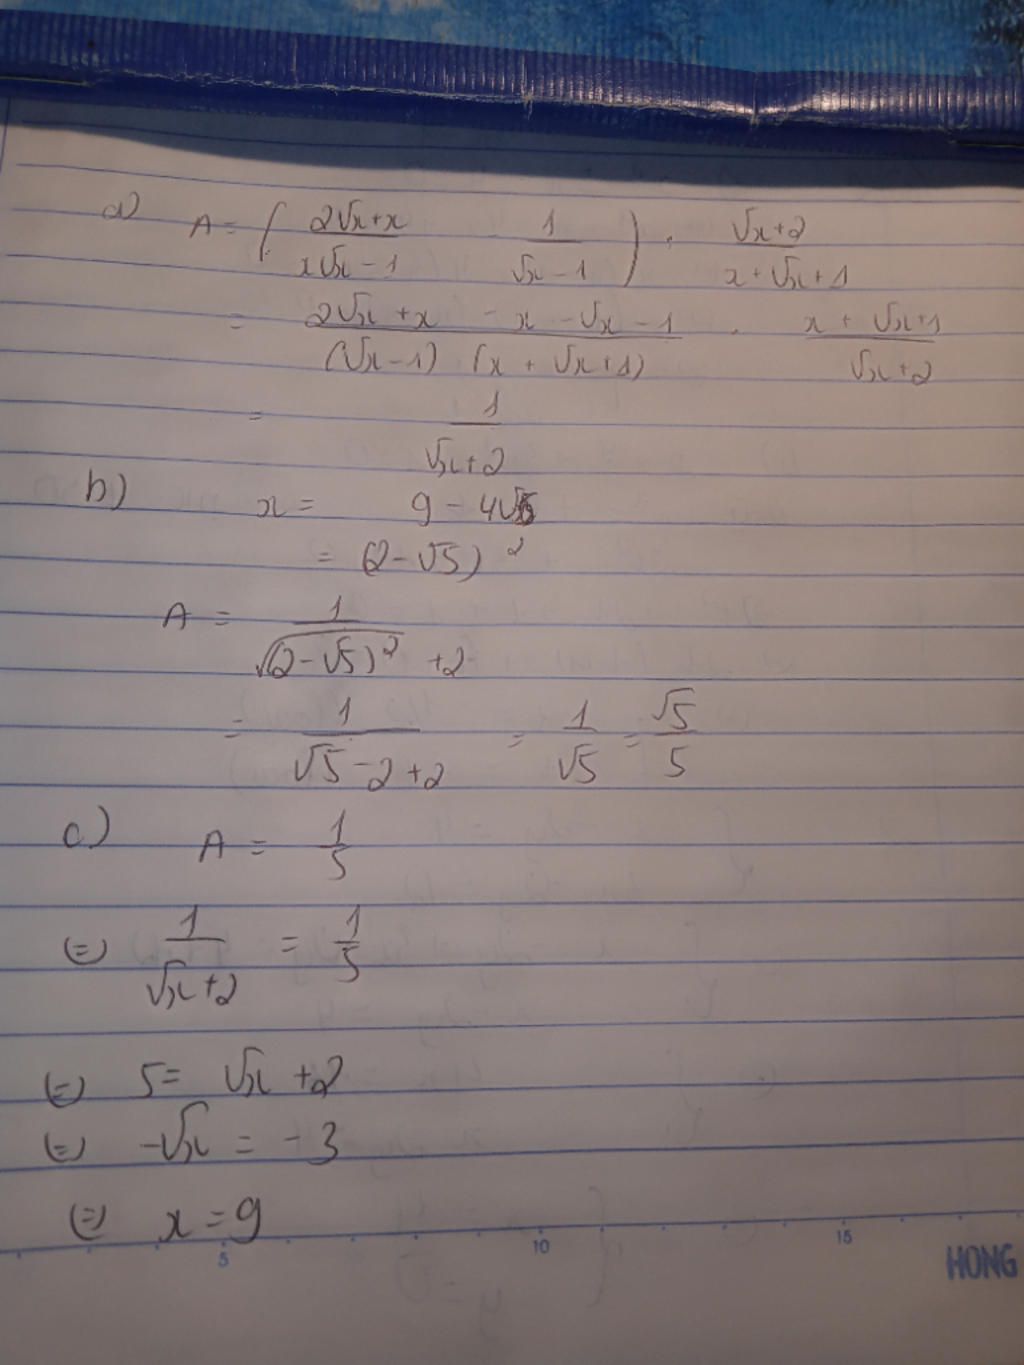 a) A = ( (2√x + x)/(x√x - 1) - 1/(√x - 1) ) : (√x + 2)/(x + √x + 1)
= (2√x + x - x - √x - 1)/((√x - 1)(x + √x + 1)) . (x + √x + 1)/(√x + 2)
= 1/(√x + 2)
b) x = 9 - 4√5
= (2 - √5)²
A = 1/(√(2 - √5)² + 2)
= 1/(√5 - 2 + 2) = 1/√5 = √5/5
c) A = 1/5
(=) 1/(√x + 2) = 1/5
(=) 5 = √x + 2
(=) -√x = -3
(=) x = 9
5 10 15 HONG